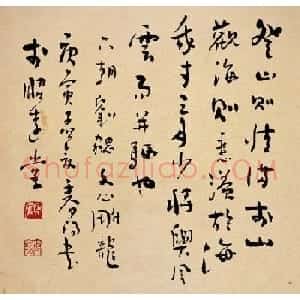 登山則情滿於山
觀海則意溢於海
我才之多少將與風
雲而並驅也
六朝劉勰文心雕龍
庚寅
書
於
堂
Shufaziliao.com